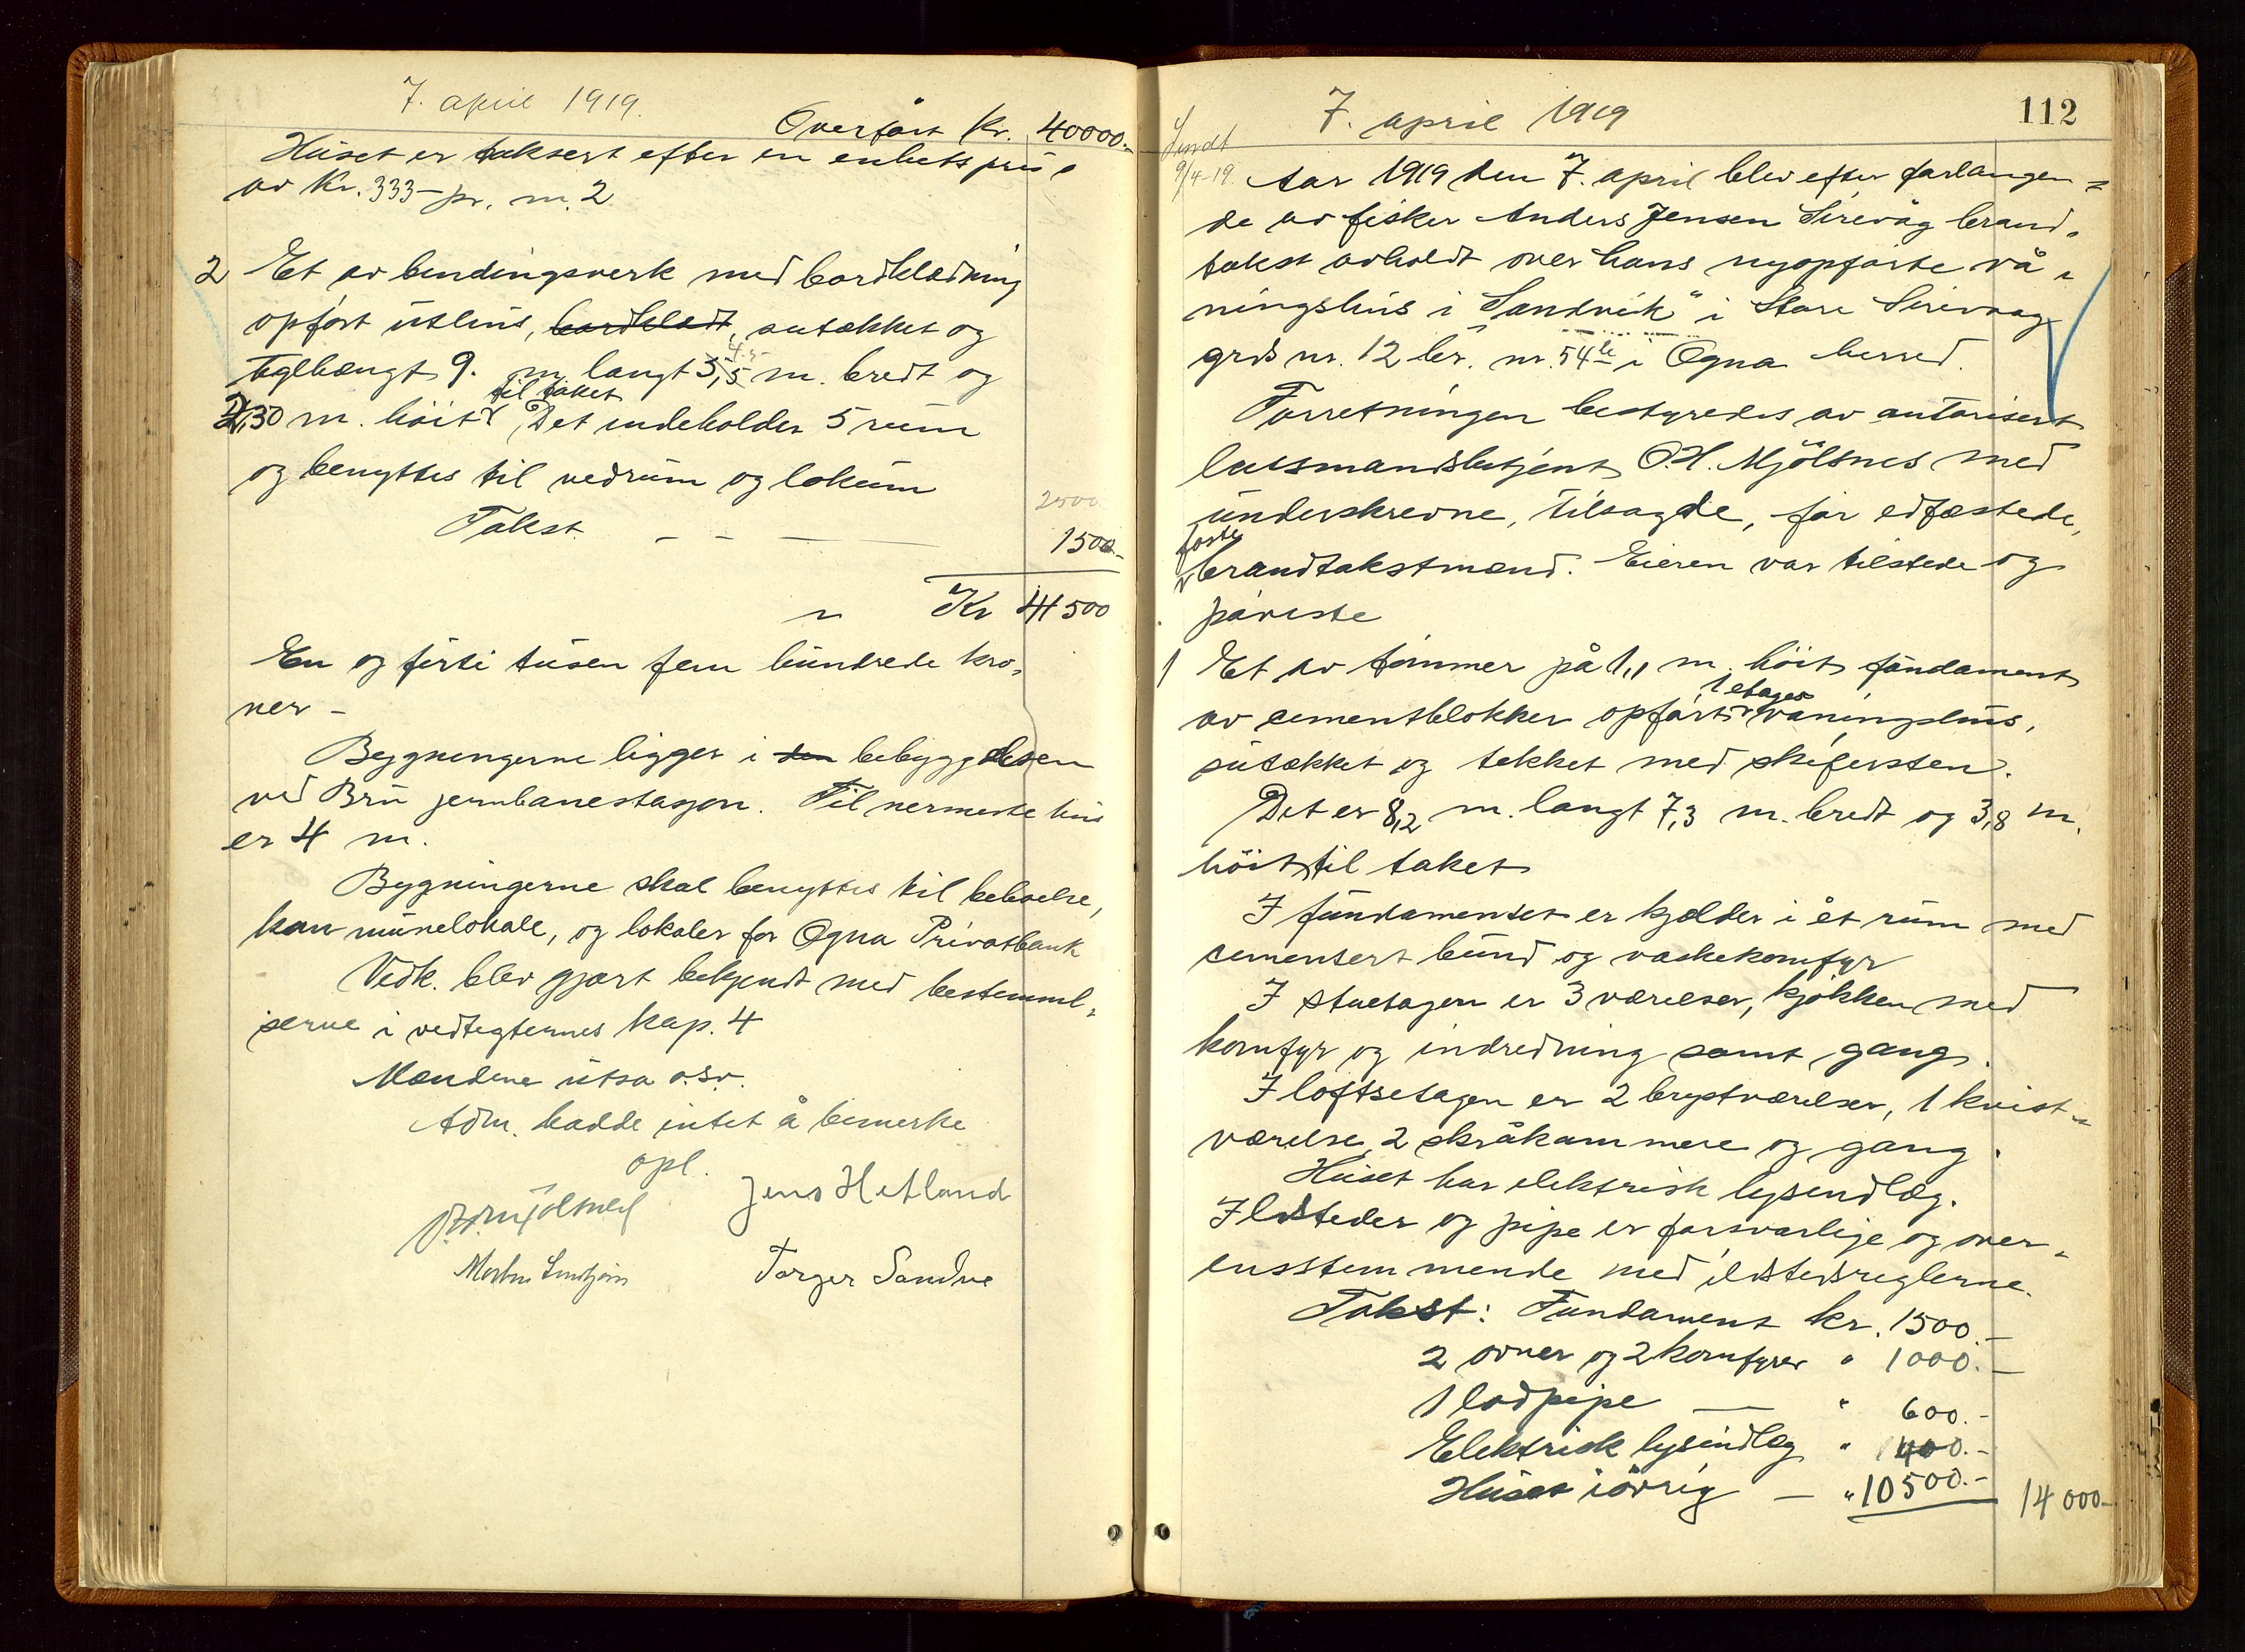 7. april 1919.
Overført Kr. 40000.-
Huset er taksert efter en enhetspris
av Kr. 333- pr. m.2
2 Et av bindingsverk med bordklædning
opført uthus, bordklædt, sutækket og
4.5
teglhængt 9. m langt 3,5 m. bredt og
til taket
2,30 m. höit Det indeholder 5 rum
og benyttes til vedrum og lokum
2500
Takst - - - 1500.-
" Kr 41500
En og førti tusen fem hundrede kro-
ner -
Bygningerne ligger i den bebyggelsen
ved Bru jernbanestasjon. Til nermeste hus
er 4 m.
Bygningerne skal benyttes til beboelse,
kommunelokale, og lokaler for Ogna Privatbank
Vedk. blev gjort bekjendt med bestemmel-
serne i vedtegternes kap. 4
Mændene utsa o.s.v.
Adm. hadde intet å bemerke
opl.
O.H. Mjølsnes Jens Hetland
Morten Torger Sandve
112
7. april 1919
Sendt
9/4-19.
Aar 1919 den 7. april blev efter forlangen-
de av fisker Anders Jensen Sirevåg brand-
takst avholdt over hans nyopførte vå-
ningshus i "Sandvik" i Store Sirevaag
grds nr. 12 br. nr. 54 i Ogna herred.
Forretningen bestyredes av autorisert
lensmandsbetjent O.H. Mjölsnes med
underskrevne, tilsagde, før edfæstede,
faste
brandtakstmænd. Eieren var tilstede og
påviste
1 Et av tømmer på 1,1 m. höit fundament
1 etages
av cementblokker opført våningshus,
sutækket og tekket med skifersten.
Det er 8,2 m. langt 7,3 m. bredt og 3,8 m.
höit til taket
I fundamentet er kjelder i ét rum med
cementert bund og vaskekomfyr
I stuetagen er 3 værelser, kjökken med
komfyr og indredning samt gang.
I loftsetagen er 2 brystværelser, 1 kvist-
værelse 2 skråkammere og gang.
Huset har elektrisk lysindlæg.
Ildsteder og pipe er forsvarlige og over-
ensstemmende med ildstedsreglerne.
Takst: Fundament kr. 1500.-
2 ovner og 2 komfyrer " 1000.-
1 lodpipe - " 600.-
Elektrisk lysindlæg " 400.-
Huset iövrig - " 10500.- 14000-